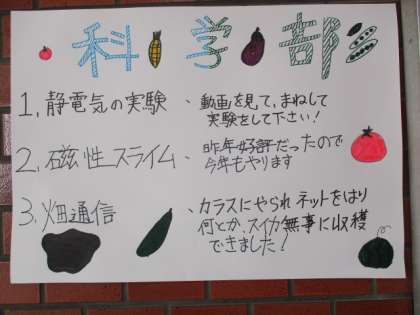 科学部
1. 静電気の実験、動画を見て、まねして
実験をして下さい!
2. 磁性スライム、昨年好評だったので
今年もやります
3. 畑通信、カラスにやられネットをはり
何とか、スイカ無事に収穫
できました!